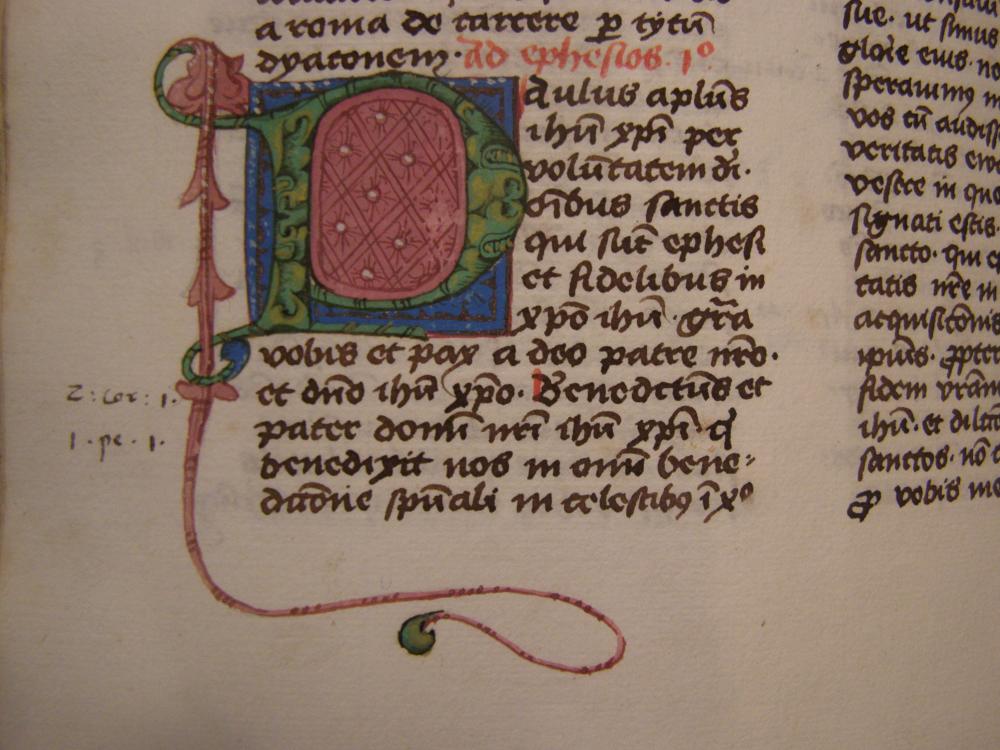 a roma de carcere ꝑ tytū
dyaconem· Ad ephesios· 1º
Paulus aplūs
ihū xpī per
volūtatem dī·
oībus sanctis
qui sūt ephesi
et fidelibus in
xpō ihū· gr̄a
vobis et pax a deo patre nr̄o·
et dn̄o ihū xpō· Benedictus et
2 : cor : 1 ·
pater domī nr̄i ihū xpī q̇
1 · pe · 1 ·
benedixit nos in omī bene⸗
dictōne spūali in celestibꝫ ī xº
sue· ut simus
glorie eius· no
sperauimꝫ in
vos cū audiss
veritatis
vestre in quo
signati estis·
sancto· qui e
tatis nr̄e in
acquisitōnis
ipsius· ꝓpter
fidem vr̄am
ihū· et dilc
sanctos· nō c
ꝓ vobis me